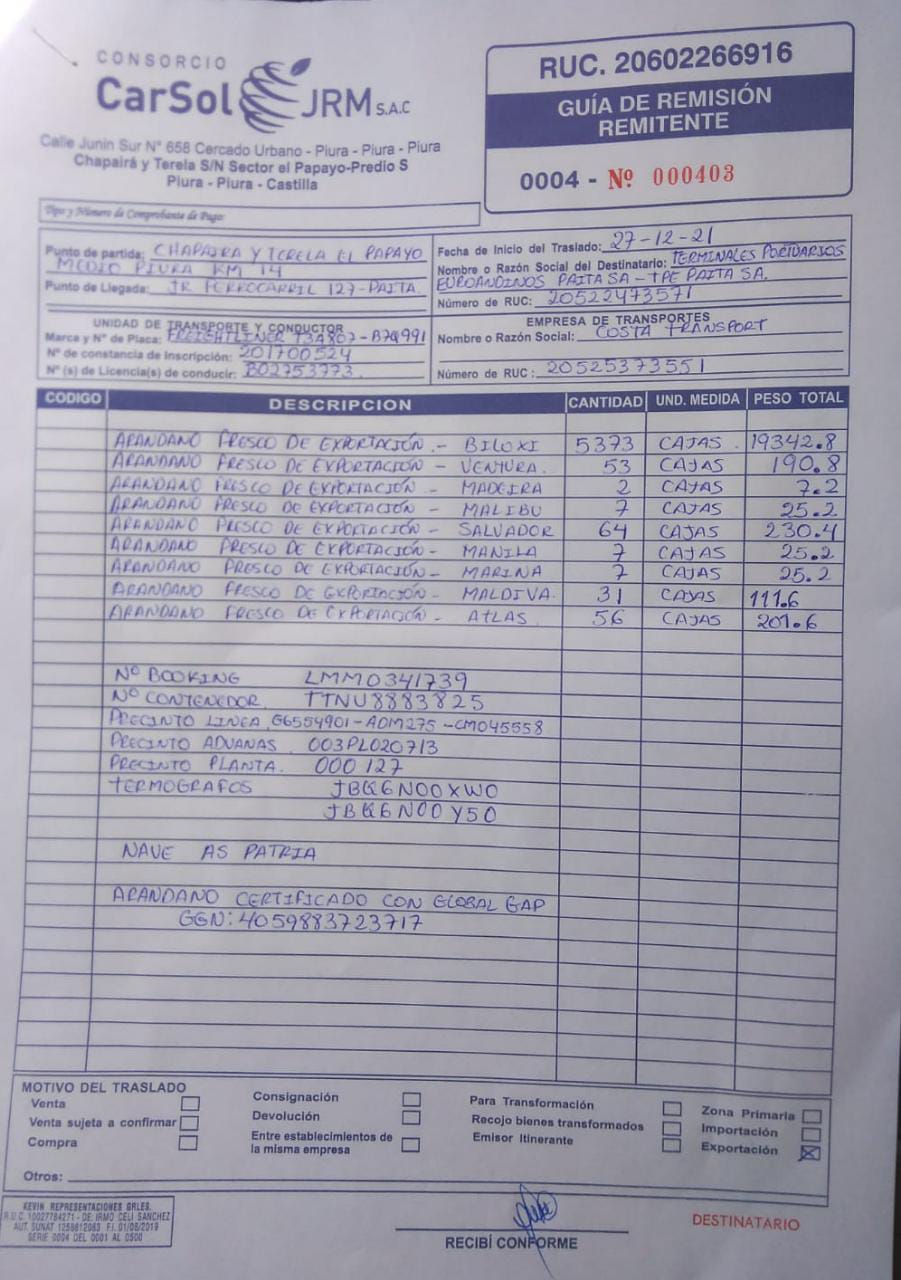 CONSORCIO
CarSol JRM S.A.C
Calle Junin Sur N° 658 Cercado Urbano - Piura - Piura - Piura
Chapairá y Terela S/N Sector el Papayo-Predio S
Piura - Piura - Castilla
RUC. 20602266916
GUÍA DE REMISIÓN
REMITENTE
0004 - Nº 000403
Tipo y Número de Comprobante de Pago:
Punto de partida: CHAPAIRA Y TERELA EL PAPAYO
MEDIO PIURA KM 14
Punto de Llegada: JR FERROCARRIL 127-PAITA.
Fecha de Inicio del Traslado: 27-12-21
Nombre o Razón Social del Destinatario: TERMINALES PORTUARIOS
EUROANDINOS PAITA SA - TPE PAITA SA.
Número de RUC: 20522473571
UNIDAD DE TRANSPORTE Y CONDUCTOR
Marca y Nº de Placa: FREIGHTLINER T3A807-B7Q991
Nº de constancia de Inscripción: 201700524
Nº (s) de Licencia(s) de conducir: B02753773
EMPRESA DE TRANSPORTES
Nombre o Razón Social: COSTA TRANSPORT
Número de RUC : 20525373551
CODIGO DESCRIPCION CANTIDAD UND. MEDIDA PESO TOTAL
ARANDANO FRESCO DE EXPORTACIÓN - BILOXI 5373 CAJAS 19342.8
ARANDANO FRESCO DE EXPORTACIÓN - VENTURA. 53 CAJAS 190.8
ARANDANO FRESCO DE EXPORTACIÓN - MADEIRA 2 CAJAS 7.2
ARANDANO FRESCO DE EXPORTACIÓN - MALIBU 7 CAJAS 25.2
ARANDANO FRESCO DE EXPORTACIÓN - SALVADOR 64 CAJAS 230.4
ARANDANO FRESCO DE EXPORTACIÓN - MANILA 7 CAJAS 25.2
ARANDANO FRESCO DE EXPORTACIÓN - MARINA 7 CAJAS 25.2
ARANDANO FRESCO DE EXPORTACIÓN - MALDIVA. 31 CAJAS 111.6
ARANDANO FRESCO DE EXPORTACIÓN - ATLAS 56 CAJAS 201.6
Nº BOOKING LMM0341739
Nº CONTENEDOR TTNU8883825
PRECINTO LINEA G6554901-ADM275-CM045558
PRECINTO ADUANAS 003PL020713
PRECINTO PLANTA. 000127
TERMOGRAFOS JBQ6N00XW0
JBQ6N00Y50
NAVE AS PATRIA
ARANDANO CERTIFICADO CON GLOBAL GAP
GGN: 4059883723717
MOTIVO DEL TRASLADO
Venta
Venta sujeta a confirmar
Compra
Consignación
Devolución
Entre establecimientos de
la misma empresa
Para Transformación
Recojo bienes transformados
Emisor Itinerante
Zona Primaria
Importación
Exportación
Otros:
KEVIN REPRESENTACIONES GRLES.
R.U.C. 10027784271 - DE: IRMO CELI SANCHEZ
AUT. SUNAT 1258612063 F.I. 01/08/2019
SERIE 0004 DEL 0001 AL 0500
RECIBÍ CONFORME
DESTINATARIO